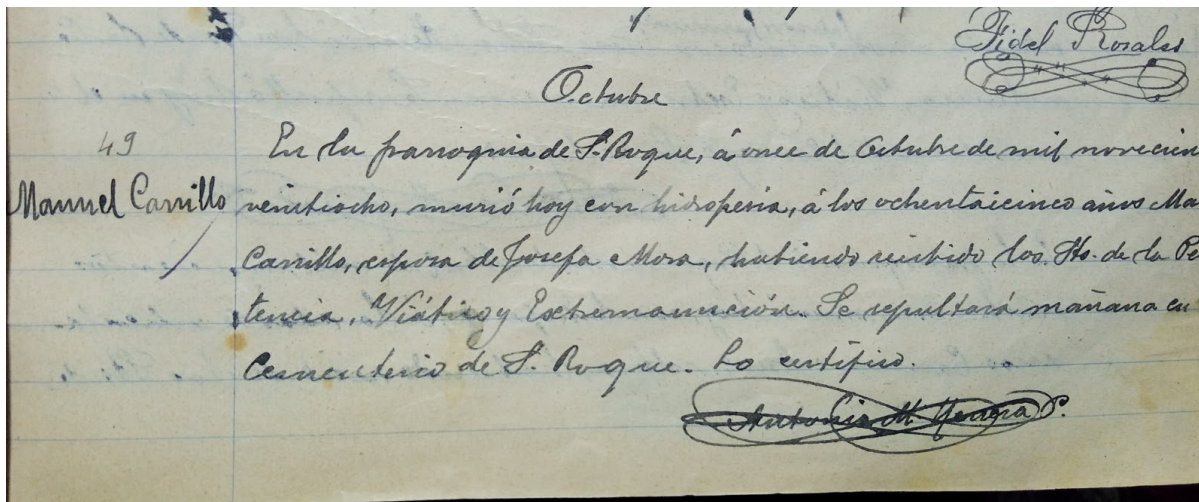 Fidel Rosales
Octubre
49
En la parroquia de S. Roque, á once de Octubre de mil novecien
Manuel Carrillo
veintiocho, murió hoy con hidropesía, á los ochentaicinco años Ma
Carrillo, esposa de Josefa Mora, habiendo recibido los Sts. de la Pe
tencia, Viático y Extremaunción. Se sepultará mañana en
Cementerio de S. Roque. Lo certifico.
Antonio M. P.